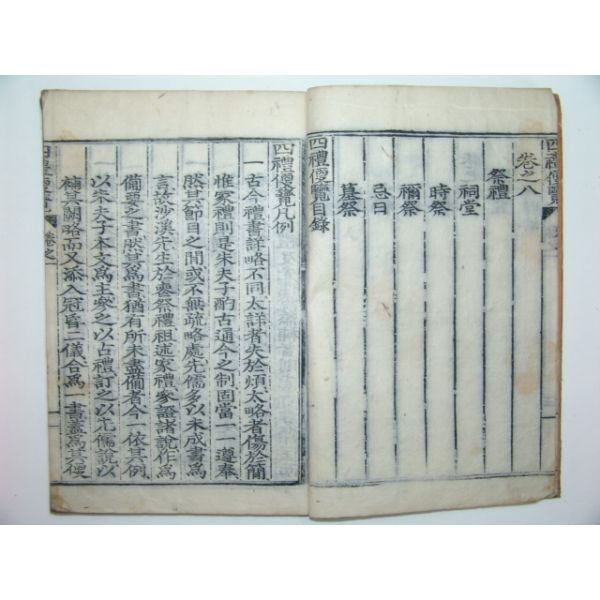 四禮便覽
卷之八
祭禮
祠堂
時祭
禰祭
忌日
墓祭
四禮便覽目錄
四禮便覽凡例
一古今禮書詳略不同太詳者失於煩太略者傷於簡
惟家禮則是朱夫子酌古通今之制固當一一遵奉
然其節目之間或不無疏略處先儒多以未成書爲
言故沙溪先生於喪祭禮祖述家禮家證諸說作爲
備要之書然其爲書猶有所未盡備者今一依其例
一以朱夫子本文爲主參之以古禮訂之以先儒說以
補其闕略而又添入冠昏二儀合爲一書蓋爲其便
四禮便覽
卷之一